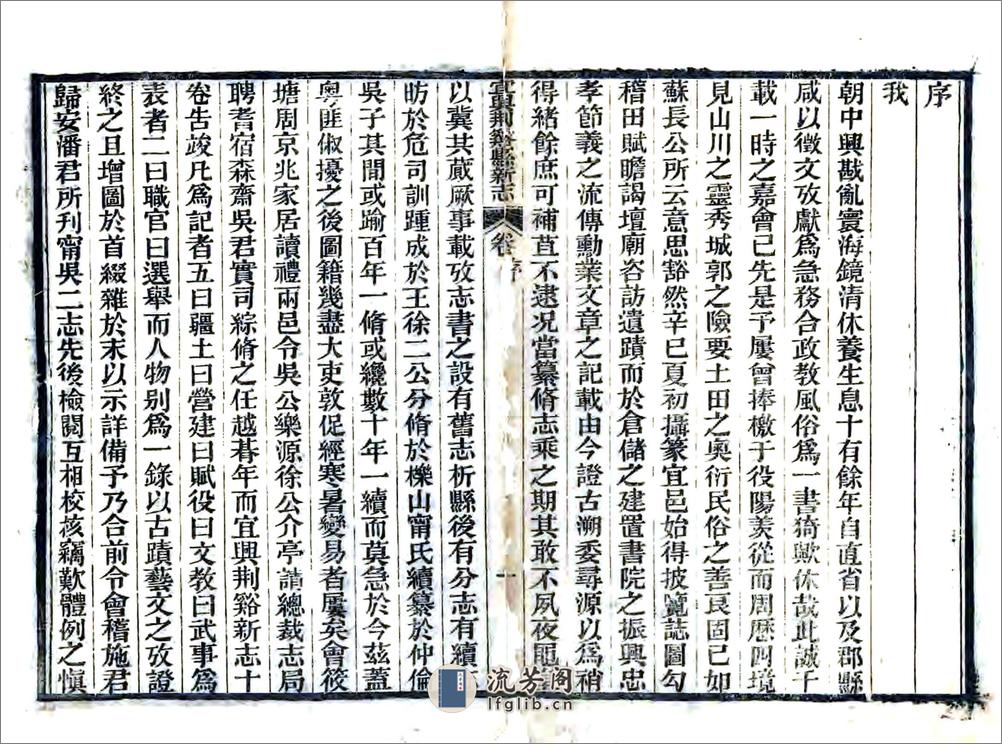 序
我
朝中興戡亂寰海鏡清休養生息十有餘年自直省以及郡縣
咸以徵文攷獻爲急務合政教風俗爲一書猗歟休哉此誠千
載一時之嘉會已先是予屢曾捧檄于役陽羨從而周歷四境
見山川之靈秀城郭之險要土田之奧衍民俗之善良固已如
蘇長公所云意思豁然辛巳夏初攝篆宜邑始得披覽誌圖勾
稽田賦瞻謁壇廟咨訪遺蹟而於倉儲之建置書院之振興忠
孝節義之流傳勳業文章之記載由今證古溯委尋源以爲稍
得緒餘庶可補苴不逮况當纂脩志乘之期其敢不夙夜黽
宜興荆谿縣新志
卷
序
一
以冀其蕆厥事載攷志書之設有舊志析縣後有分志有續
昉於危司訓踵成於王徐二公分脩於櫟山甯氏續纂於仲倫
吳子其間或踰百年一脩或纔數十年一續而莫急於今茲蓋
粵匪俶擾之後圖籍幾盡大吏敦促經寒暑變易者屢矣會筱
塘周京兆家居讀禮兩邑令吳公樂源徐公介亭請總裁志局
聘耆宿森齋吳君實司綜脩之任越朞年而宜興荆谿新志十
卷告竣凡爲記者五曰疆土曰營建曰賦役曰文教曰武事爲
表者二曰職官曰選舉而人物别爲一錄以古蹟藝文之攷證
終之且增圖於首綴雜於末以示詳備予乃合前令會稽施君
歸安潘君所刊甯吳二志先後檢閱互相校核竊歎體例之愼
流芳阁
lfglib.cn